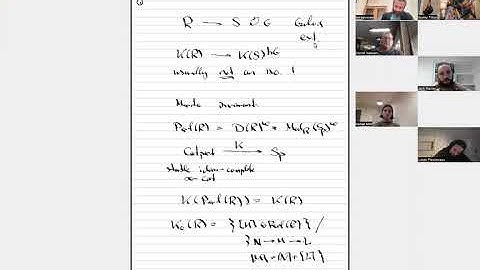 R → S ↺ G Galois
ext.
K(R) → K(S)^{hG}
usually not an iso. !
Morita invariant
Perf(R) = D(R)^ω = Mod_R(Sp)^ω
Cat^{perf} —K→ Sp
stable idem-complete
∞-cat
K(Perf(R)) = K(R)
K_0(R) = { [M] ∈ Perf(R) } /
} N → M → L
[M] = [N] + [L] }